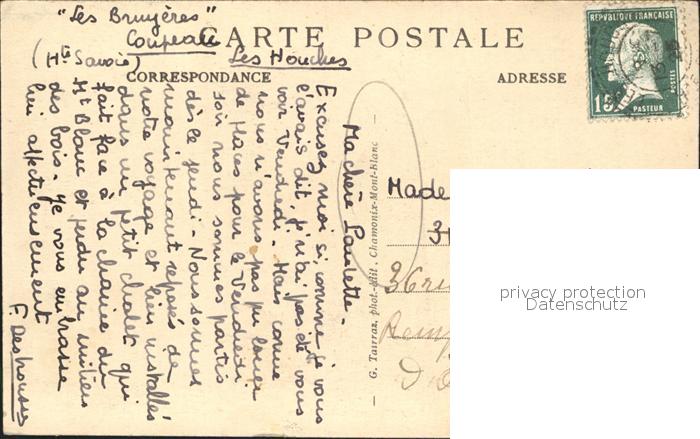 "Les Bruyères"
Coupeau
Les Houches
(Hte Savoie)
CARTE POSTALE
CORRESPONDANCE
ADRESSE
RÉPUBLIQUE FRANÇAISE
15c
POSTES
PASTEUR
Ma chère Paulette -
Excusez moi si, comme je vous
l'avais dit, je n'ai pas été vous
voir Vendredi. Mais comme
nous n'avons pas pu louer
de places pour le Vendredi
soir nous sommes partis
dès le jeudi - Nous sommes
maintenant reposés de
notre voyage et bien installés
dans un petit chalet qui
fait face à la chaîne du
Mt Blanc et perdu au milieu
des bois. Je vous embrasse
bien affectueusement
F. Deshouses
G. Tairraz, phot.-édit. Chamonix-Mont-Blanc
Made
36 rue
privacy protection
Datenschutz